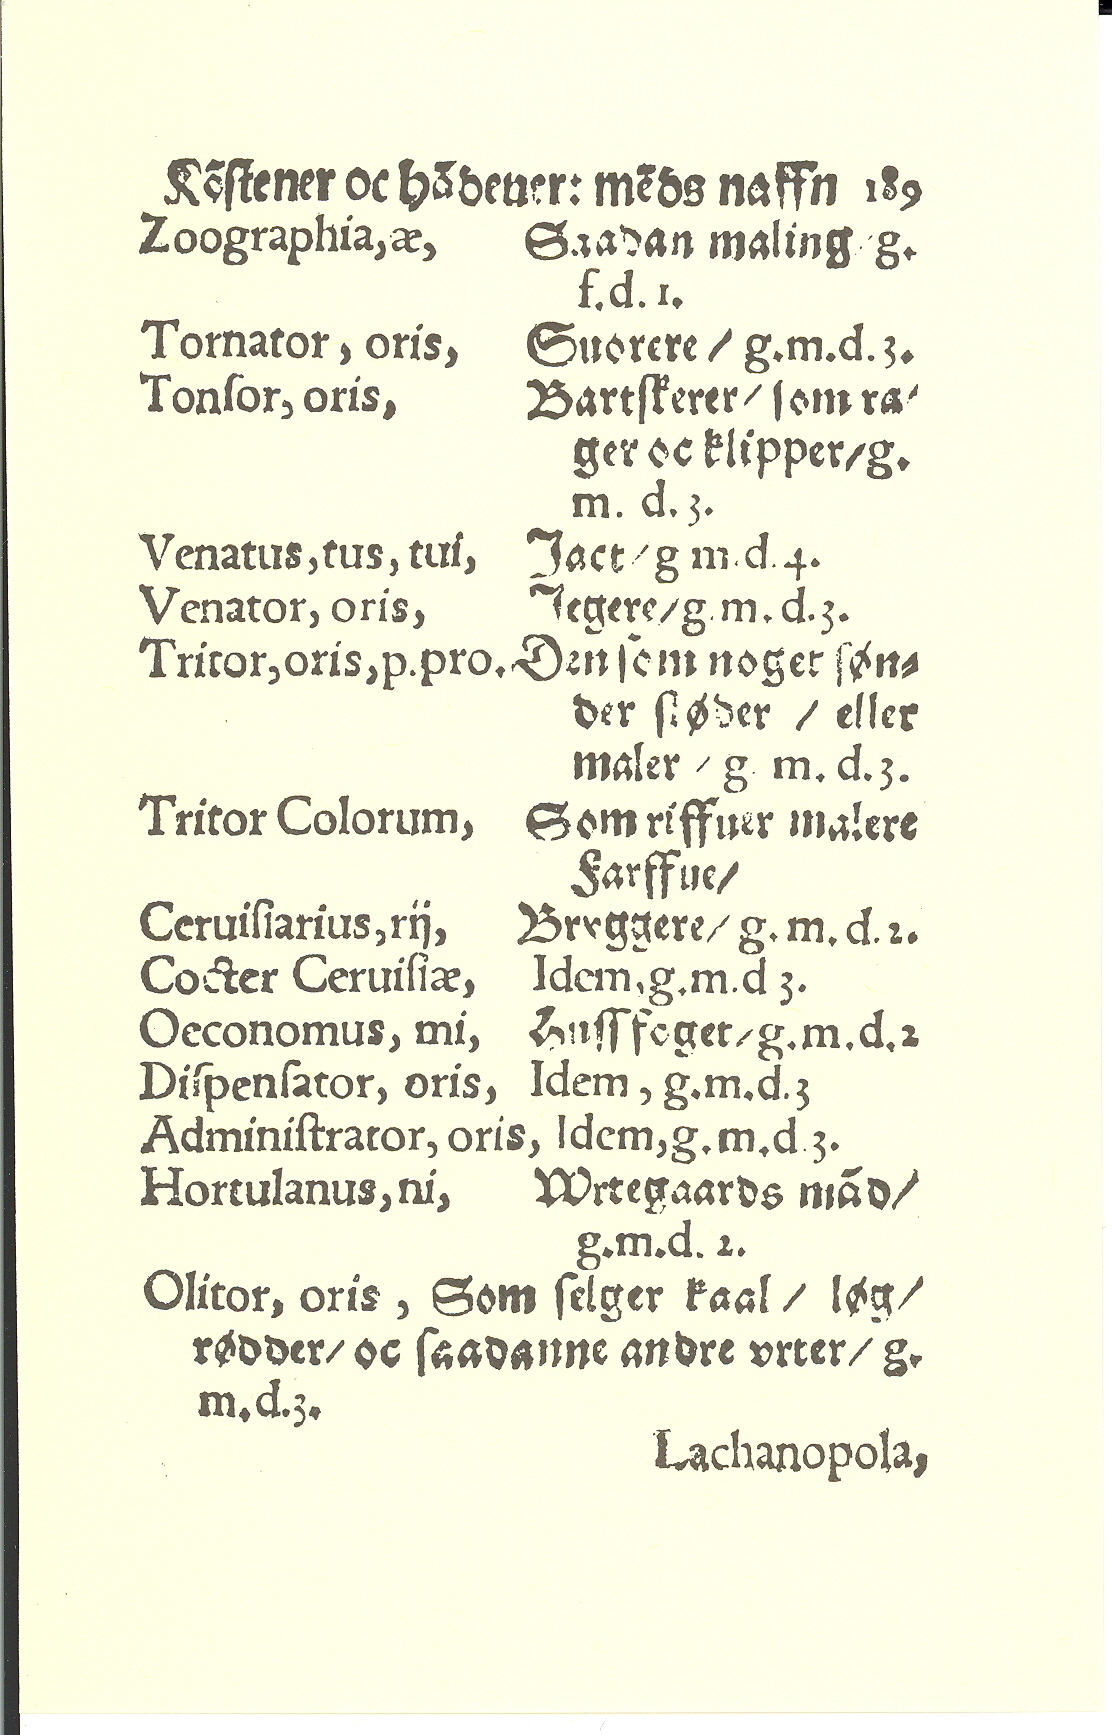 Kõſtener oc hãdeuer: mẽds naffn 189
Zoographia,æ, Saadan maling g.
f.d. 1.
Tornator, oris, Suorere / g.m.d.3.
Tonſor, oris, Bartſkerer/ ſom ra⸗
ger oc klipper/g.
m. d.3.
Venatus,tus, tui, Jact/g m.d.4.
Venator, oris, Jegere/g.m.d.3.
Tritor,oris,p.pro. Den ſom noget ſøn⸗
der ſtøder / eller
maler / g m. d.3.
Tritor Colorum, Som riffuer malere
Farffue/
Ceruiſiarius,rij, Bryggere/ g.m.d.2.
Cocter Ceruiſiæ, Idem,g.m.d 3.
Oeconomus, mi, Huſſfoget/g.m.d.2
Diſpenſator, oris, Idem, g.m.d.3
Adminiſtrator, oris, Idem,g.m.d.3.
Hortulanus,ni, Wrtegaards mãd/
g.m.d. 2.
Olitor, oris, Som ſelger kaal / løg/
rødder/ oc ſaadanne andre vrter/ g.
m.d.3.
Lachanopola,